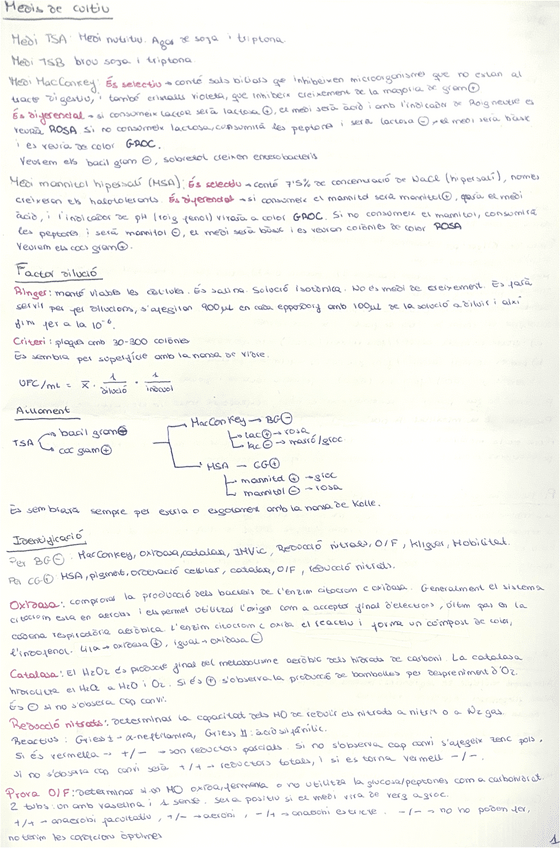 Medis de cultiu
Medi TSA: Medi nutritiu. Agar de soja i triptona.
Medi TSB brou soja i triptona
Medi MacConkey: És selectiu → conté sals biliars que inhibeixen microorganismes que no estan al
tracte digestiu, i també cristalls violeta, que inhibeix creixement de la majoria de gram⊕
És diferencial → si consumeix lactosa serà lactosa ⊕, el medi serà àcid i amb l'indicador de Roig neutre es
veurà ROSA. Si no consumeix lactosa, consumirà les peptones i serà lactosa ⊖, el medi serà bàsic
i es veurà de color GROC.
Veurem els bacil gram ⊖, sobretot creixen enterobacteris
Medi mannitol hipersalí (MSA): És selectiu → conté 7'5% de concentració de NaCl (hipersalí), només
creixeran els halotolerants. És diferencial → si consumeix el mannitol serà mannitol⊕, el medi
àcid, i l'indicador de pH (roig fenol) virarà a color GROC. Si no consumeix el mannitol, consumirà
les peptones i serà mannitol ⊖, el medi serà bàsic i es veuran colònies de color ROSA
Veurem els cocs gram⊕.
Factor dilució
Ringer: manté viables les cèl·lules. És salina. Solució isotònica. No és medi de creixement. Es farà
servir per fer dilucions, s'afegiran 900µL en cada eppendorf amb 100µL de la solució a diluir i així
fins fer a la 10⁻⁶.
Criteri: plaques amb 30-300 colònies
Es sembra per superfície amb la nansa de vidre.
UFC/mL = x̄ · 1/dilució · 1/inòcul
Aïllament
TSA bacil gram⊖ coc gram⊕
MacConkey → BG⊖
lac⊕ → rosa
lac⊖ → marró/groc
MSA — CG⊕
mannitol ⊕ → groc
mannitol ⊖ → rosa
Es sembrarà sempre per estria o esgotament amb la nansa de Kolle.
Identificació
Per BG⊖: MacConkey, oxidasa, catalasa, IMViC, Reducció nitrats, O/F, Kligler, Mobilitat.
Per CG⊕ MSA, pigment, ordenació cel·lular, catalasa, O/F, reducció nitrats.
Oxidasa: comprova la producció dels bacteris de l'enzim citocrom c oxidasa. Generalment el sistema
citocrom està en aerobis i els permet utilitzar l'oxigen com a acceptor final d'electrons, últim pas en la
cadena respiratòria aeròbica. L'enzim citocrom c oxida el reactiu i forma un compost de color,
l'indofenol. Lila → oxidasa⊕, igual → oxidasa⊖
Catalasa: El H₂O₂ és producte final del metabolisme aeròbic dels hidrats de carboni. La catalasa
hidrolitza el H₂O₂ a H₂O i O₂. Si és ⊕ s'observa la producció de bombolles per despreniment d'O₂.
És ⊖ si no s'observa cap canvi.
Reducció nitrats: determinar la capacitat dels MO de reduir els nitrats a nitrit o a N₂ gas.
Reactius: Griess I - α-neftilamina, Griess II: àcid sulfanílic.
Si és vermella → +/- → són reductors parcials. Si no s'observa cap canvi s'afegeix zenc pols,
si no s'observa cap canvi serà +/+ → reductors totals, i si es torna vermell -/-.
Prova O/F: determinar si un MO oxida, fermenta o no utilitza la glucosa/peptones com a carbohidrat.
2 tubs: un amb vaselina i 1 sense. Serà positiu si el medi vira de verd a groc.
+/+ → anaerobi facultatiu, +/- → aerobi, -/+ → anaerobi estricte. -/- → no ho podem fer,
no tenim les condicions òptimes
1